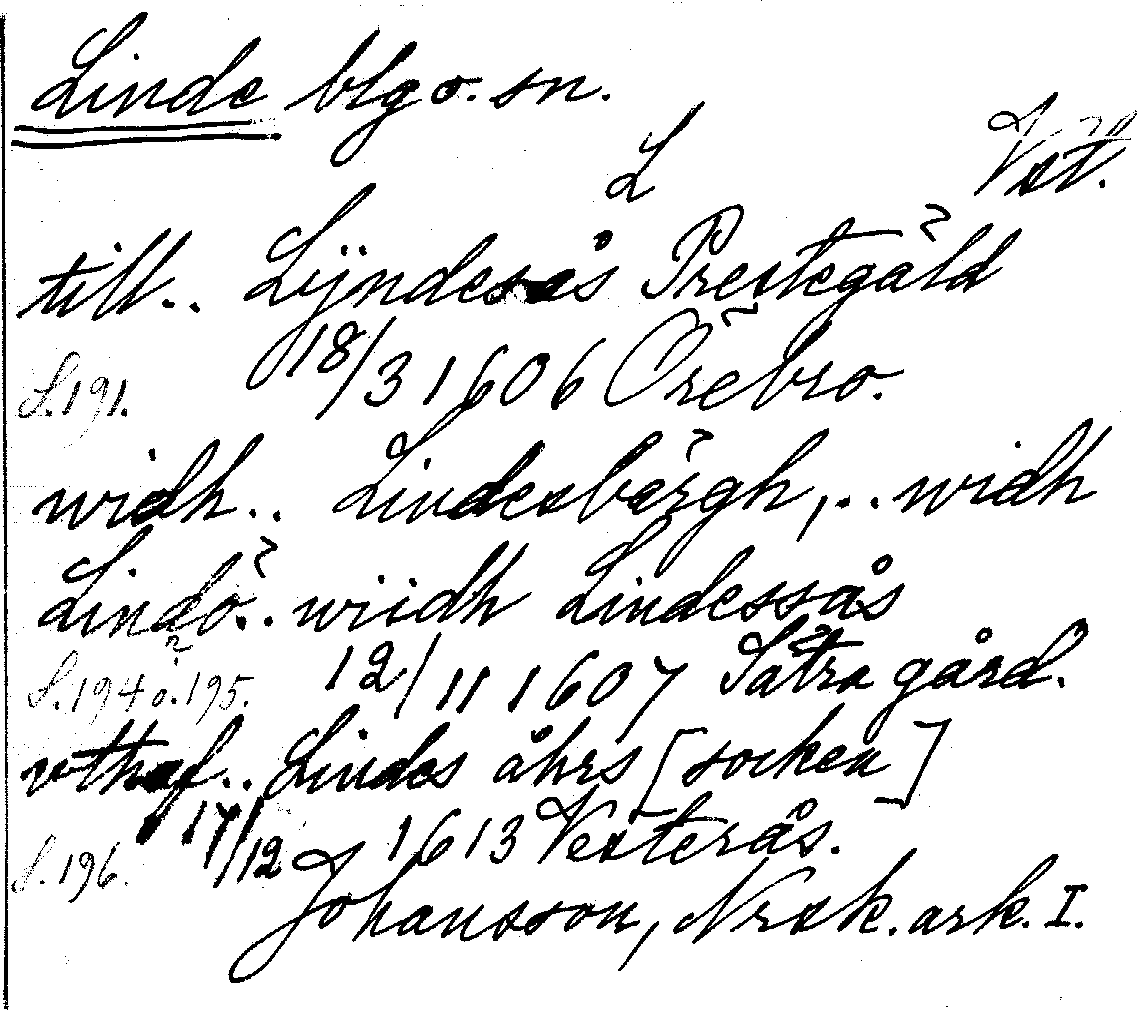 Linde blg o. sn.
L Vst.
till.. Lÿndesås Prestegäld
S. 191. 18/3 1606 Örebro.
widh.. Lindesbärgh,.. widh
Lindö.. wiidh Lindessås
S. 194 o. 195. 12/11 1607 Sätra gård.
vthaf.. Lindes åhrs [socken]
S. 196. 17/12 1613 Vesterås.
Johansson, Nrsk. ark. I.